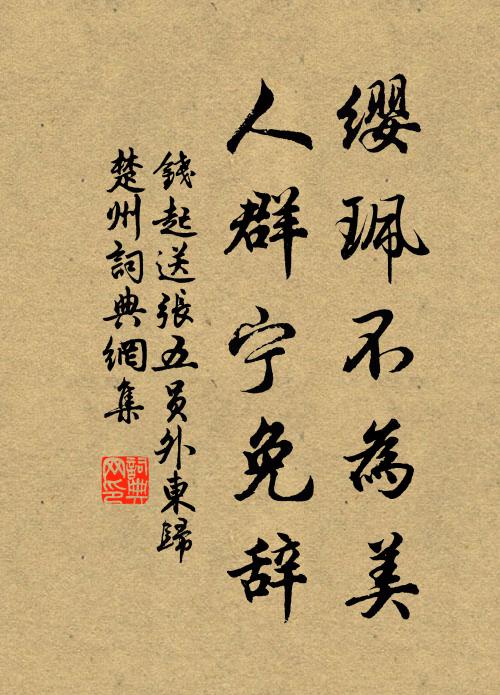 缨珮不為美
人群宁免辞
錢起送張五員外東歸
楚州詞典網集
詞典
网印